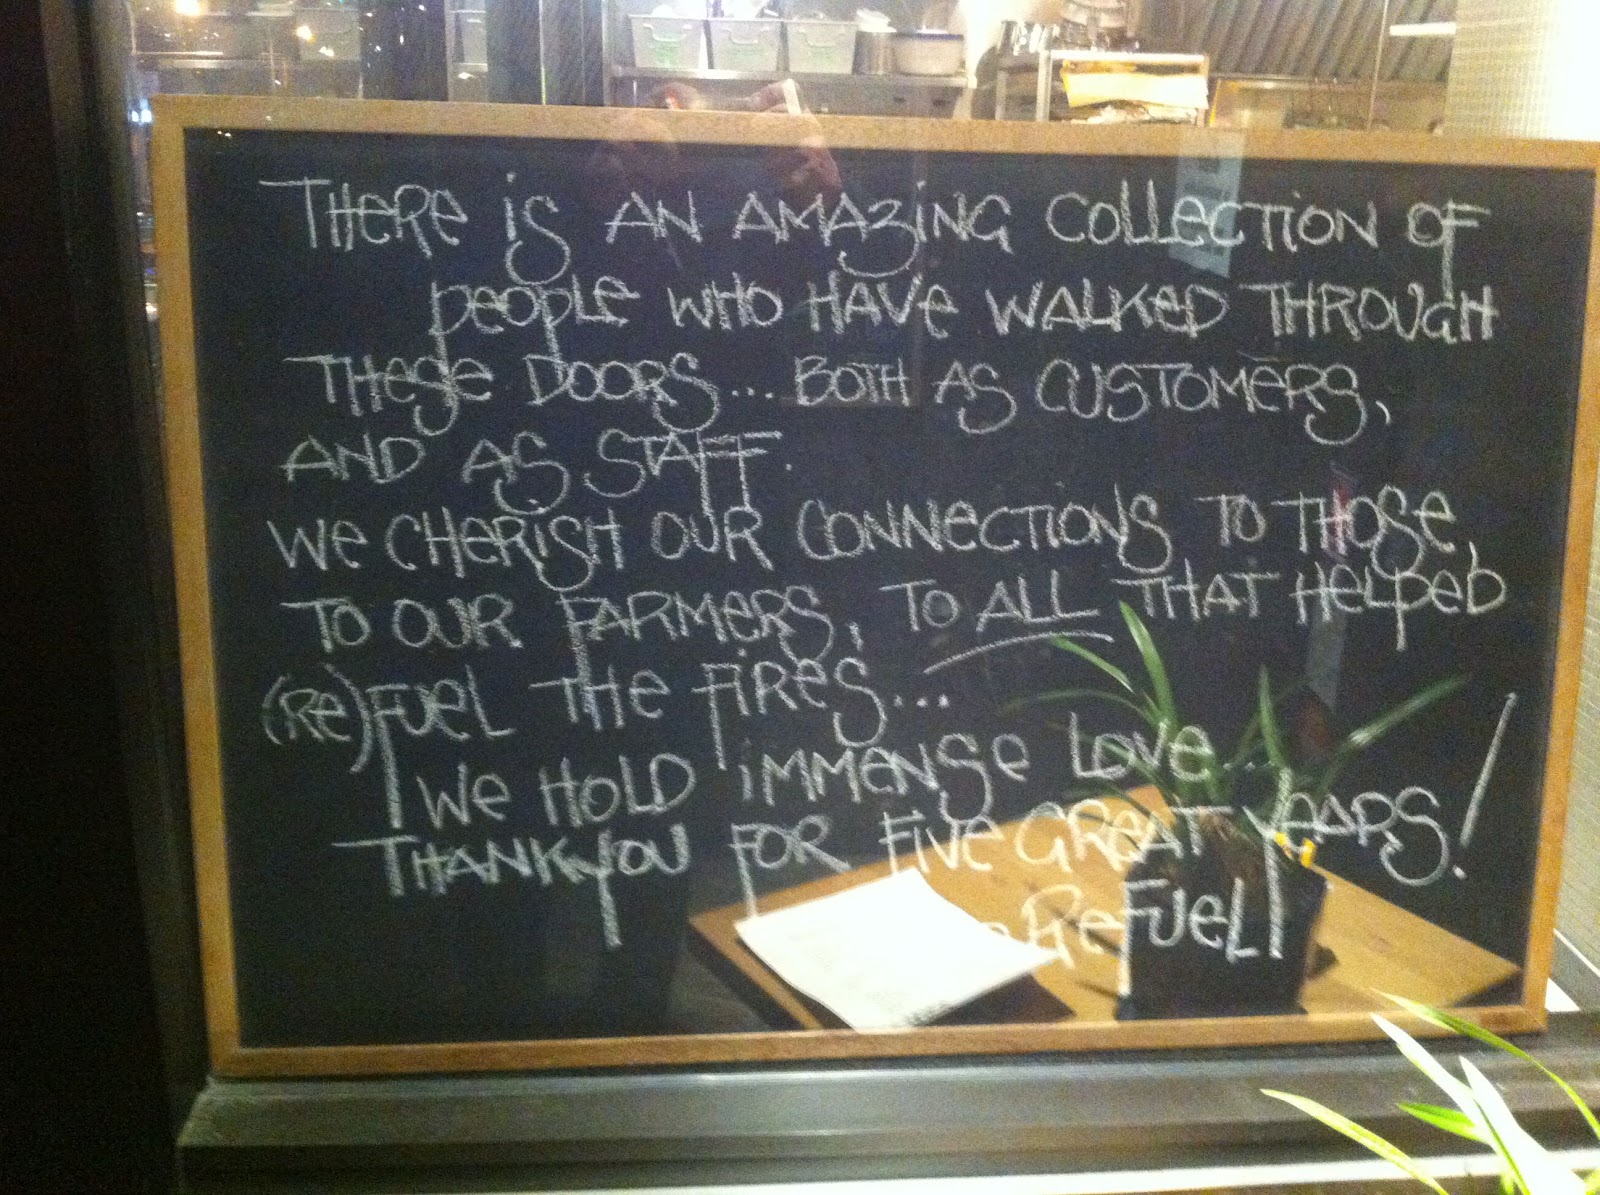 THERE IS AN AMAZING COLLECTION OF
PEOPLE WHO HAVE WALKED THROUGH
THESE DOORS... BOTH AS CUSTOMERS,
AND AS STAFF.
WE CHERISH OUR CONNECTIONS TO THOSE,
TO OUR FARMERS, TO ALL THAT HELPED
(RE)FUEL THE FIRES...
WE HOLD IMMENSE LOVE...
THANKYOU FOR FIVE GREAT YEARS!
REFUEL